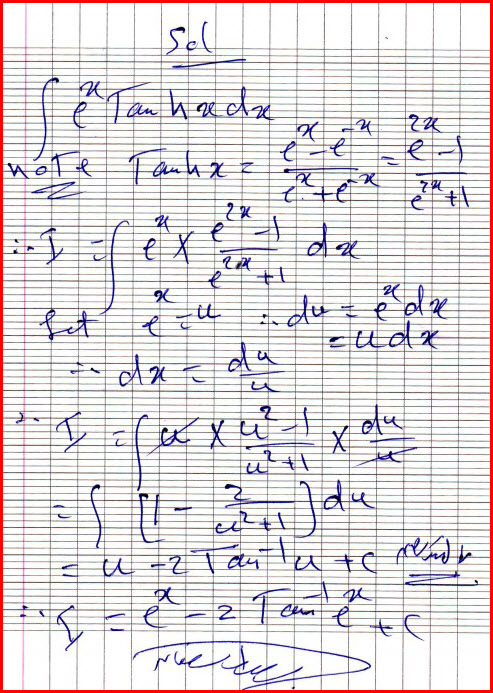 Sol
∫ e^x Tanh x dx
NOTE Tanh x = (e^x - e^-x)/(e^x + e^-x) = (e^2x - 1)/(e^2x + 1)
∴ I = ∫ e^x × (e^2x - 1)/(e^2x + 1) dx
Let e^x = u ∴ du = e^x dx
= u dx
∴ dx = du/u
∴ I = ∫ u × (u^2 - 1)/(u^2 + 1) × du/u
= ∫ [1 - 2/(u^2 + 1)] du
= u - 2 Tan^-1 u + c
∴ I = e^x - 2 Tan^-1 e^x + c